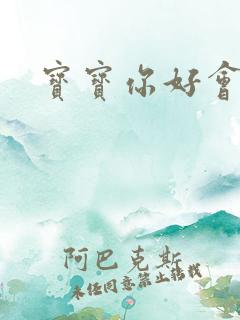 寶寶你好會
阿巴克斯
未经同意禁止转载